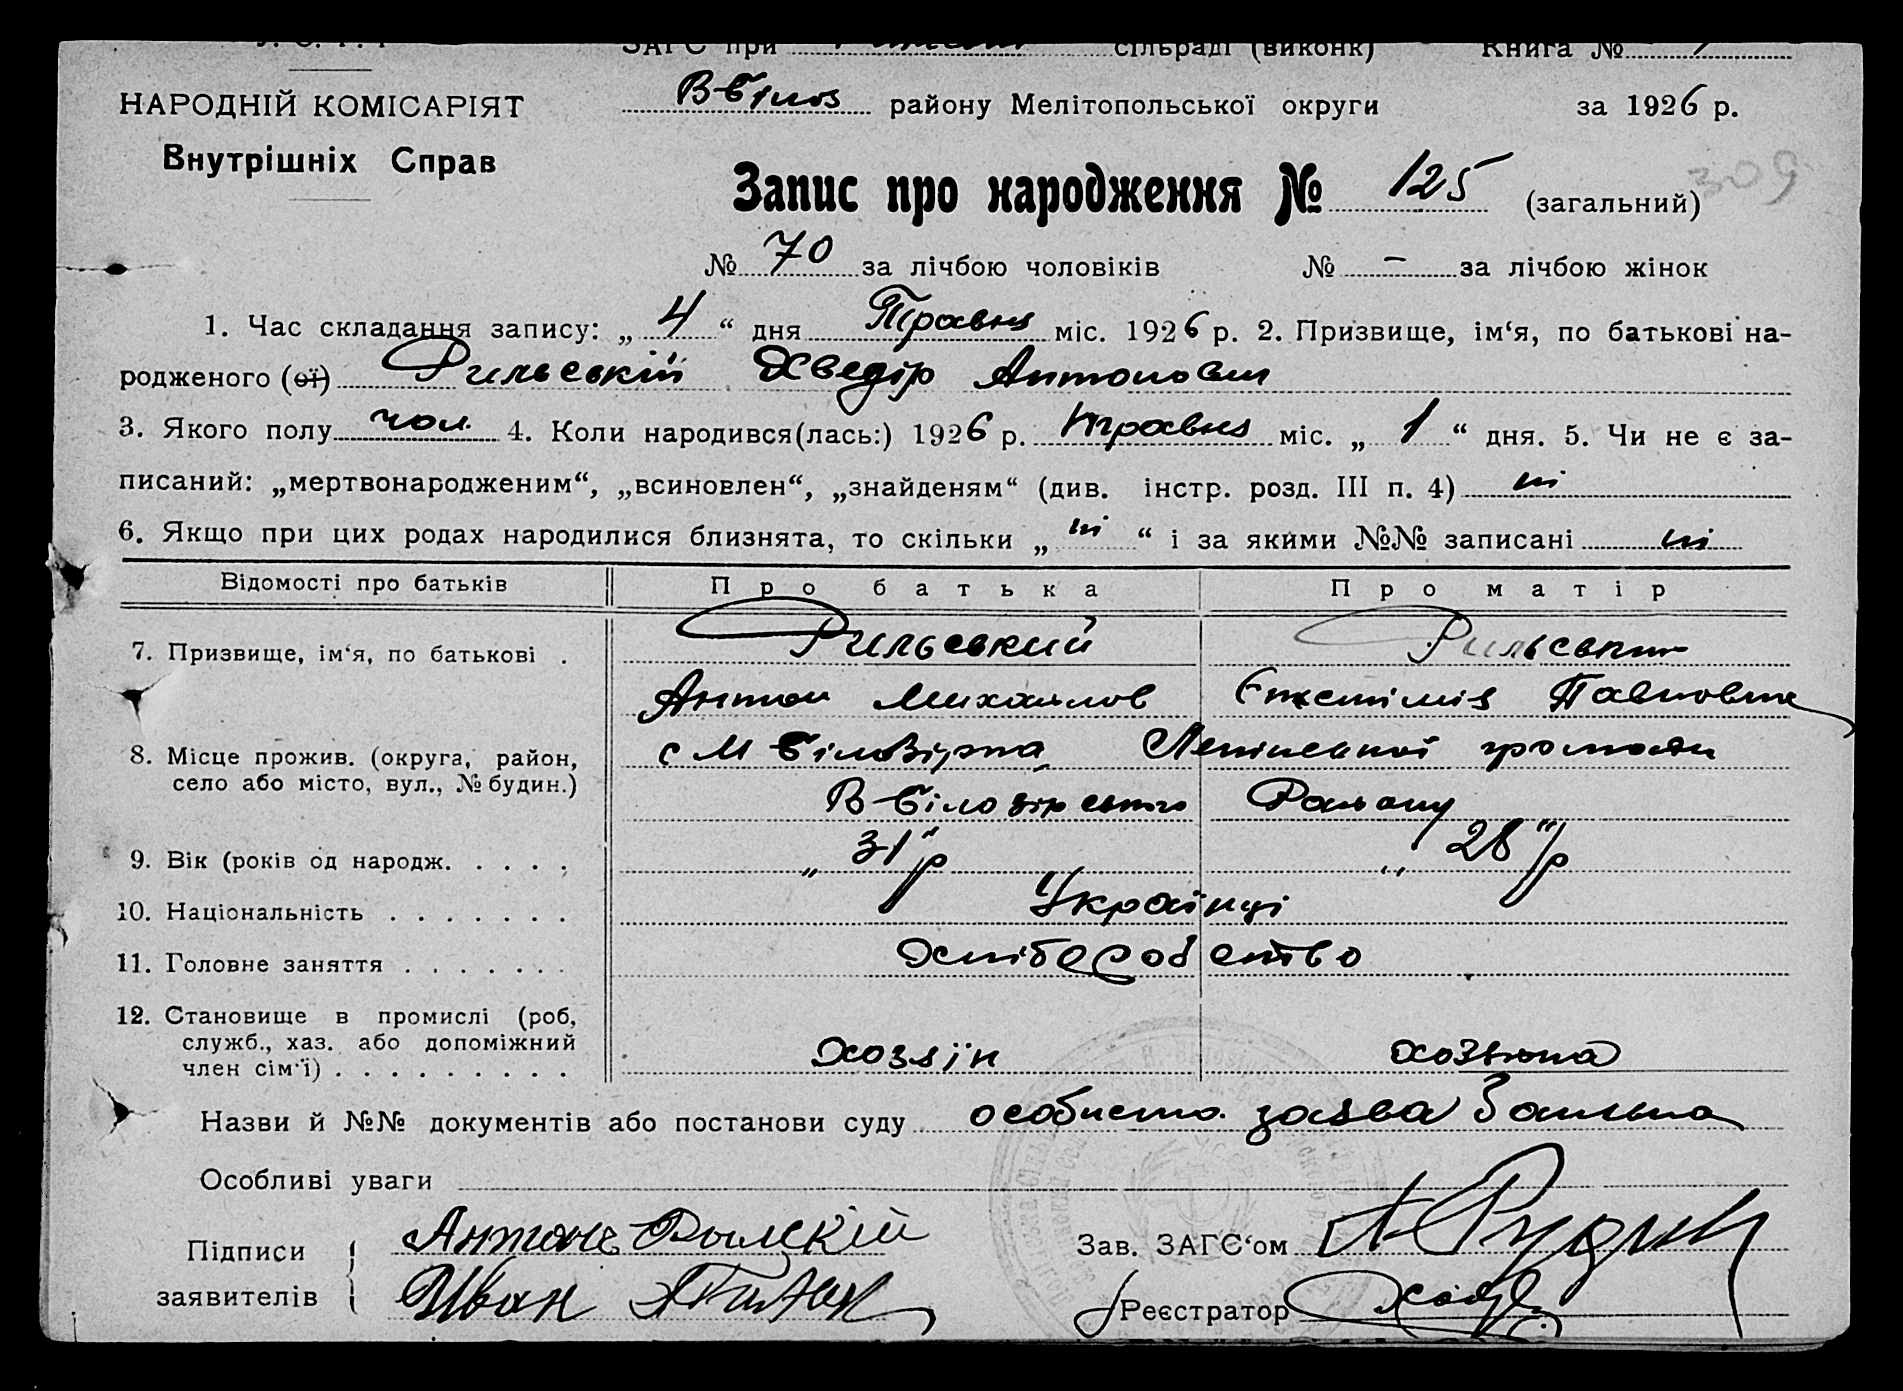 ЗАГС при сільраді (виконк) Книга №
НАРОДНІЙ КОМІСАРІЯТ
В-Білоз району Мелітопольської округи за 1926 р.
Внутрішніх Справ
Запис про народження № 125 (загальний) 309
№ 70 за лічбою чоловіків № – за лічбою жінок
1. Час складання запису: „ 4 “ дня Травня міс. 1926 р. 2. Призвище, ім‘я, по батькові на-
родженого (ої) Рильський Хведір Антонович
3. Якого полу чол. 4. Коли народився(лась:) 1926 р. травня міс. „ 1 “ дня. 5. Чи не є за-
писаний: „мертвонародженим“, „всиновлен“, „знайденям“ (див. інстр. розд. III п. 4) ні
6. Якщо при цих родах народилися близнята, то скільки „ ні “ і за якими №№ записані ні
Відомості про батьків Про батька Про матір
7. Призвище, ім‘я, по батькові . Рильський Рильська
Антон Михайлов Павловна
8. Місце прожив. (округа, район, с М Білозірка, громади
село або місто, вул., № будин.)
В-Білозірського Району
9. Вік (років од народж. . . . . „ 31 “ р „ 28 “ р
10. Національність . . . . . . . Українці
11. Головне заняття . . . . . . . Хліборобство
12. Становище в промислі (роб,
служб., хаз. або допоміжний
член сім‘ї) . . . . . . . . . хозяїн хозяйка
Назви й №№ документів або постанови суду особиста заява
Особливі уваги
Підписи Антонъ Рылскій Зав. ЗАГС‘ом
заявителів Иван Реєстратор